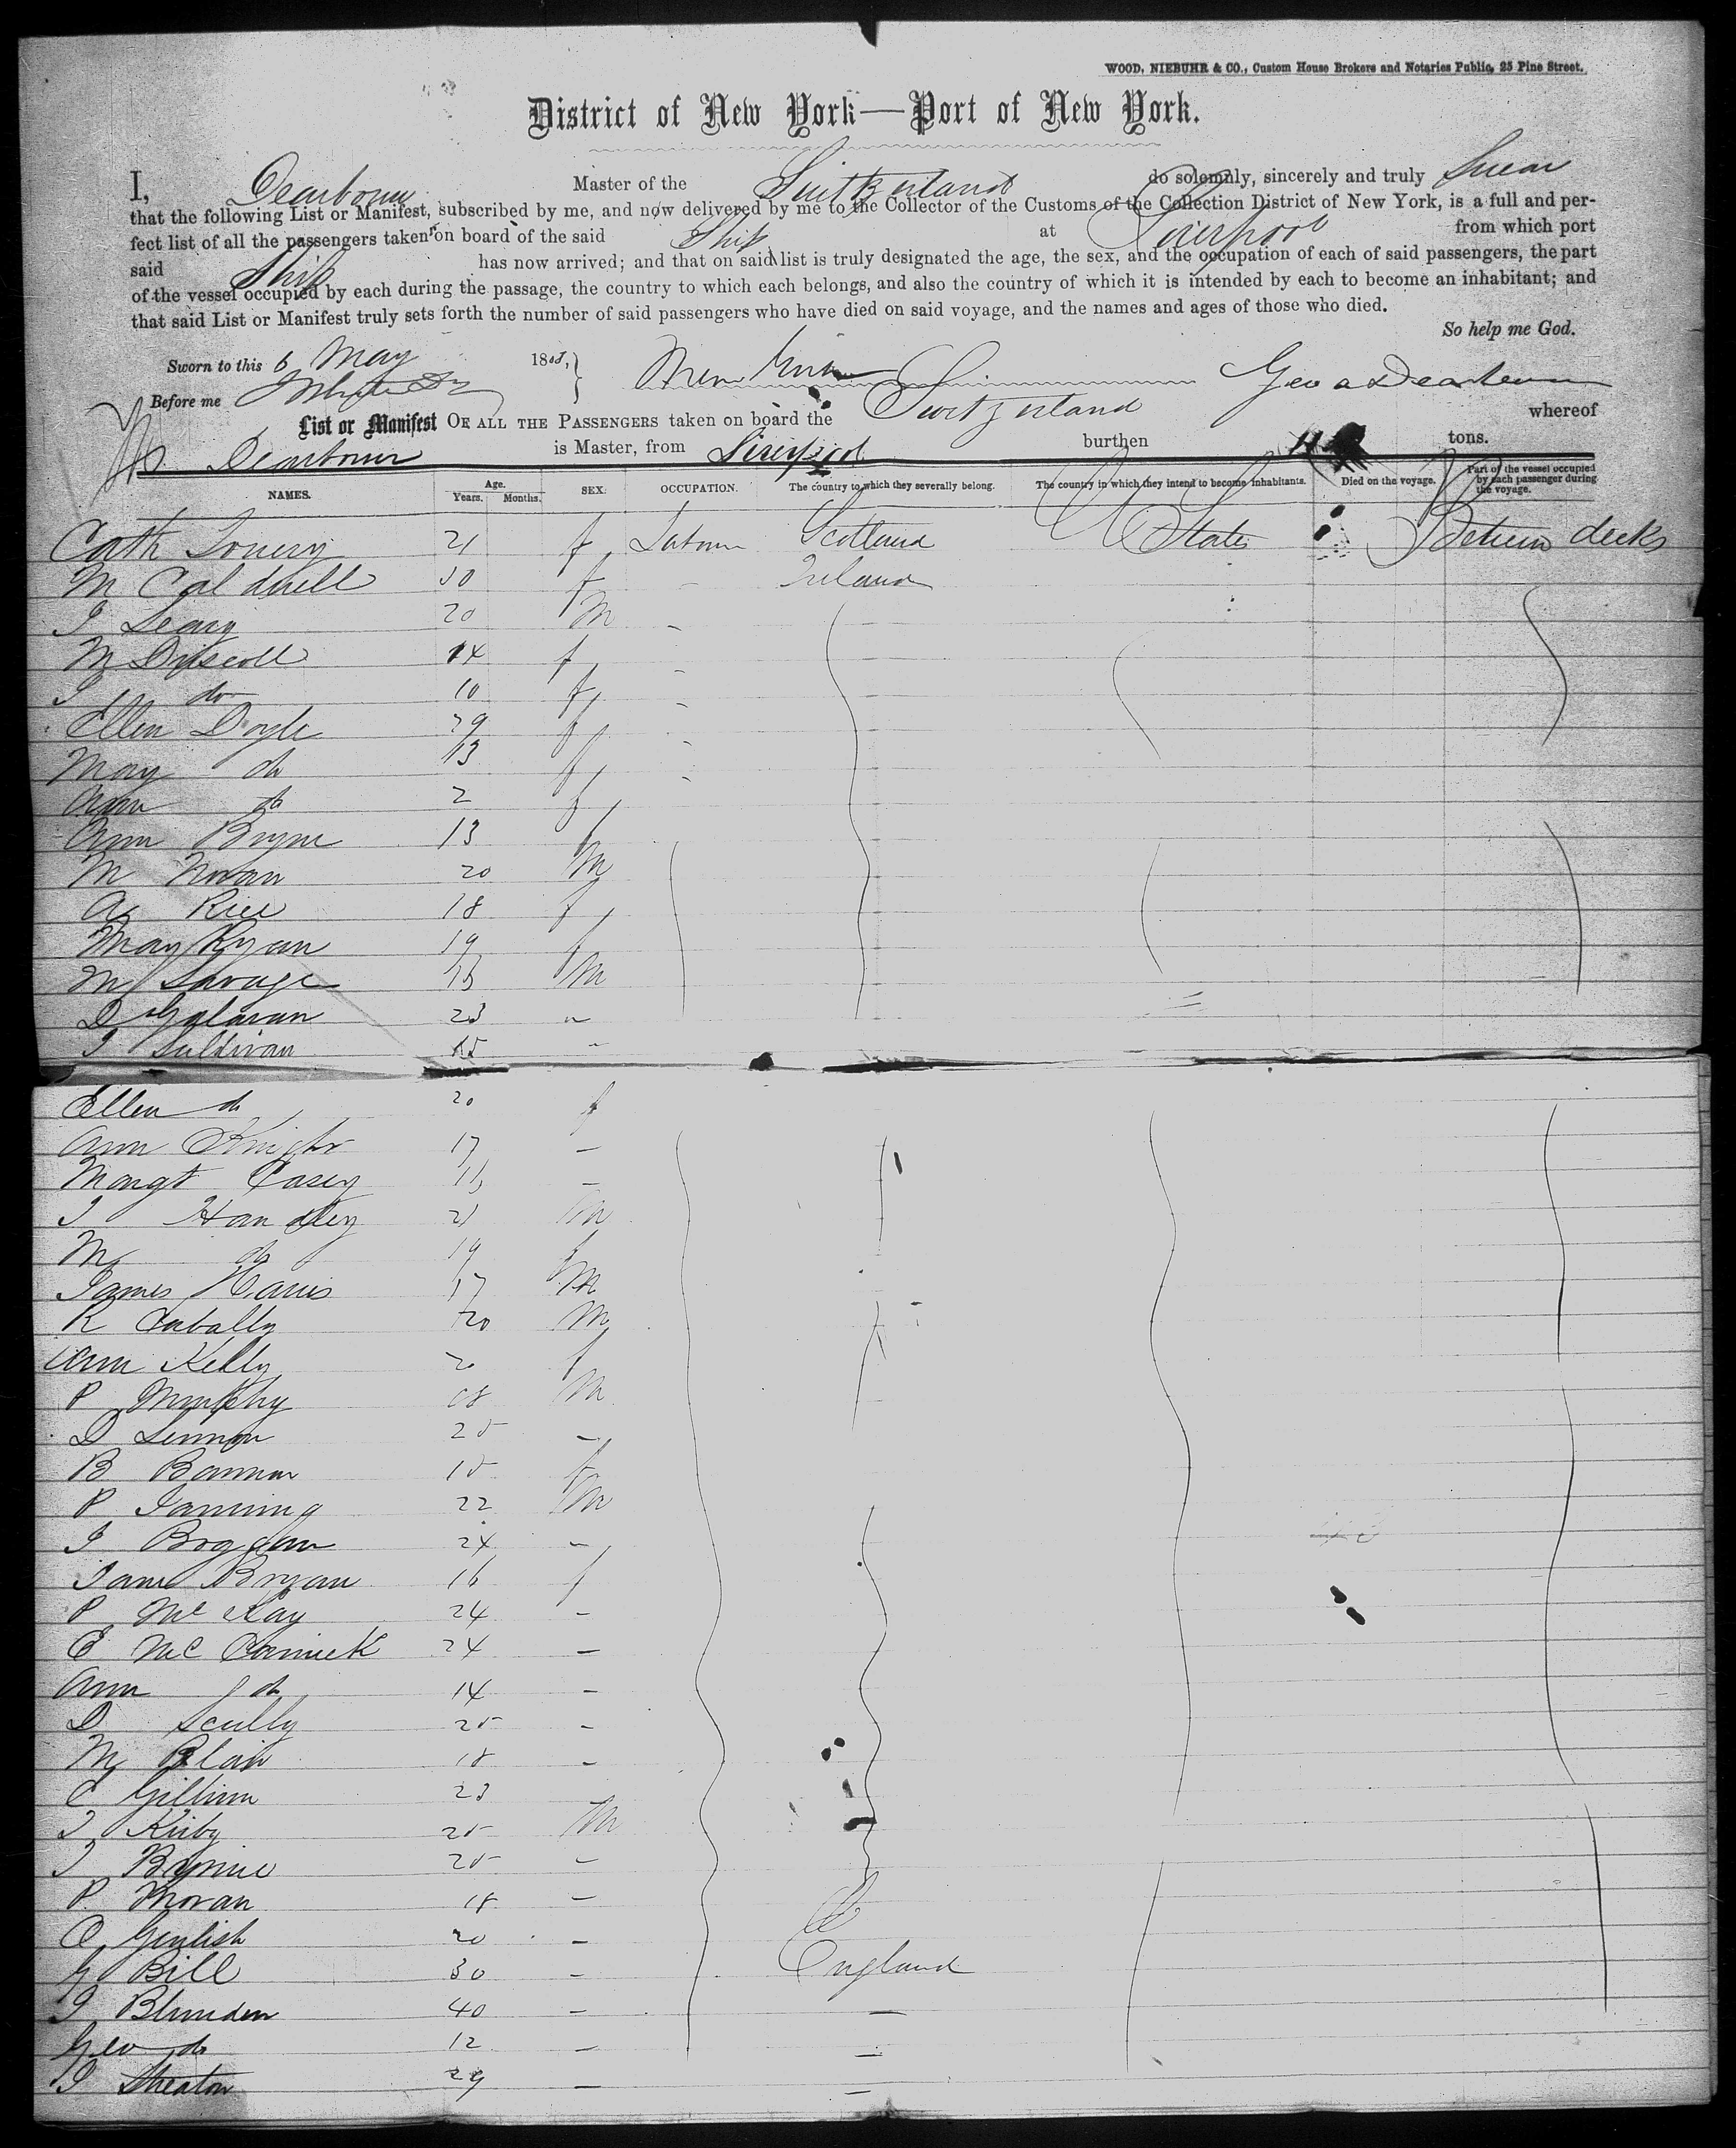 WOOD, NIEBUHR & CO., Custom House Brokers and Notaries Public, 25 Pine Street.
District of New York—Port of New York.
I, Dearborn Master of the Switzerland do solemnly, sincerely and truly Swear
that the following List or Manifest, subscribed by me, and now delivered by me to the Collector of the Customs of the Collection District of New York, is a full and per-
fect list of all the passengers taken on board of the said Ship at Liverpool from which port
said Ship has now arrived; and that on said list is truly designated the age, the sex, and the occupation of each of said passengers, the part
of the vessel occupied by each during the passage, the country to which each belongs, and also the country of which it is intended by each to become an inhabitant; and
that said List or Manifest truly sets forth the number of said passengers who have died on said voyage, and the names and ages of those who died.
So help me God.
Sworn to this 6 May 18
Before me Geo a Dearborn
List or Manifest OF ALL THE PASSENGERS taken on board the Switzerland whereof
Dearborn is Master, from Liverpool burthen tons.
NAMES. Age. Years. Months. SEX. OCCUPATION. The country to which they severally belong. The country in which they intend to become inhabitants. Died on the voyage. Part of the vessel occupied by each passenger during the voyage.
Cath 21 f Scotland U States Between decks
M Caldwell 30 f - Ireland
J Leary 20 M -
M Driscoll 14 f -
J do 10 f -
Ellen Doyle 29 f -
May do 13 f -
Ann do 2 f
Ann Bryne 13 f
M 20 M
A Rice 18 f
May Ryan 19 f
M Savage 13 M
D 23 "
J Sullivan -
Ellen do 20 f
Ann Knight 17 -
Margt Casey -
J Handley 21 M
M do 19 f
James Harris 17 M
R 20 M
Ann Kelly 20 f
P Murphy M
D Lennon 25 -
B Bannon 15 f
P 22 M
J Brogan 24 -
Jane Bryan 16 f
P Mc Kay 24 -
E McCormick 24 -
Ann do 14 -
D Scully 25 -
M Blair 18 -
C 23
J Kirby 25 M
J Byrnie 25 -
P Moran 18 -
20 -
G Bill 30 - England
J Blunden 40 - -
Geo do 12 - -
J Sheaton 29 - -